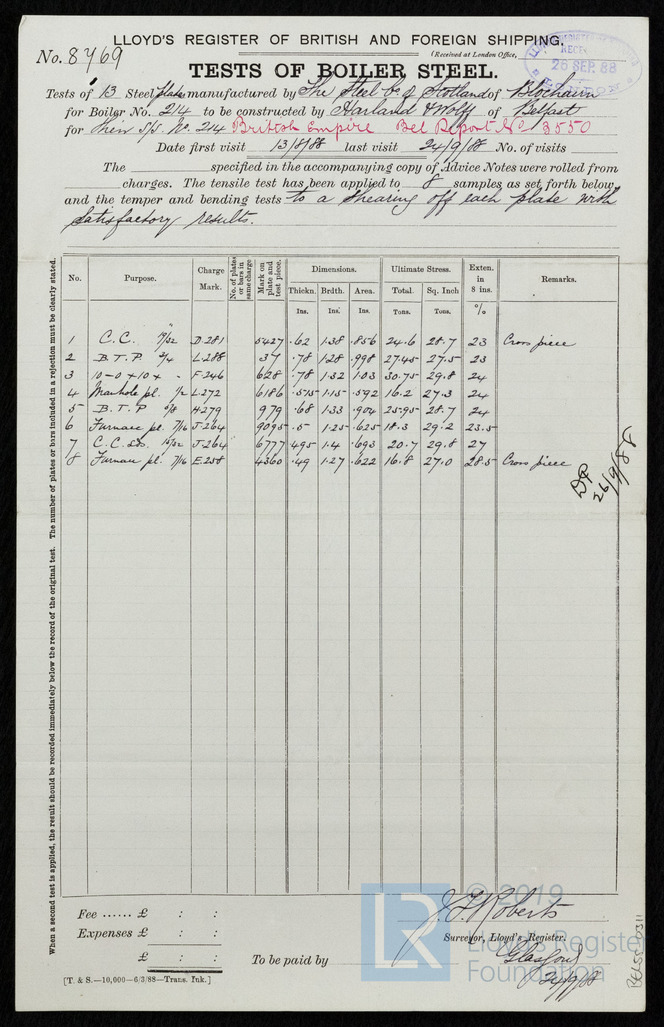 LLOYD'S REGISTER OF BRITISH AND FOREIGN SHIPPING.
No. 8769
(Received at London Office,
26 SEP. 88
TESTS OF BOILER STEEL.
Tests of 13 Steel plates manufactured by The Steel Co of Scotland of Blochairn
for Boiler No. 214 to be constructed by Harland & Wolff of Belfast
for Their S/S No. 214 British Empire Bel Report No 3550
Date first visit 13/8/88 last visit 24/9/88 No. of visits
The specified in the accompanying copy of Advice Notes were rolled from
charges. The tensile test has been applied to 8 samples as set forth below,
and the temper and bending tests to a shearing off each plate with
satisfactory results.
No. Purpose. Charge Mark. No. of plates or bars in same charge Mark on plate and test piece. Dimensions. Ultimate Stress. Exten. in 8 ins. Remarks.
Thickn. Brdth. Area. Total. Sq. Inch
Ins. Ins. Ins. Tons. Tons. %
1 C.C. 19/32" D.281 5427 .62 1.38 .856 24.6 28.7 23 Cross piece
2 B.T.P. 3/4 L.288 37 .78 1.28 .998 27.45 27.5 23
3 10-0 x 10 x - F.246 628 .78 1.32 1.03 30.75 29.8 24
4 Manhole pl. 1/2 L.272 6186 .515 1.15 .592 16.2 27.3 24
5 B.T.P 5/8 H.279 979 .68 1.33 .904 25.95 28.7 24
6 Furnace pl. 7/16 J.264 9095 .5 1.25 .625 18.3 29.2 23.5
7 C.C. 15/32 J.264 6777 .495 1.4 .693 20.7 29.8 27
8 Furnace pl. 7/16 E.258 4360 .49 1.27 .622 16.8 27.0 28.5 Cross piece
26/9/88
When a second test is applied, the result should be recorded immediately below the record of the original test. The number of plates or bars included in a rejection must be clearly stated.
Fee ...... £ : :
Expenses £ : :
£ : :
J. F. Roberts
Surveyor, Lloyd's Register.
To be paid by
Glasgow
24/9/88
[T. & S.—10,000—6/3/88—Trans. Ink.]
© 2019
LR
Lloyd's Register
Foundation